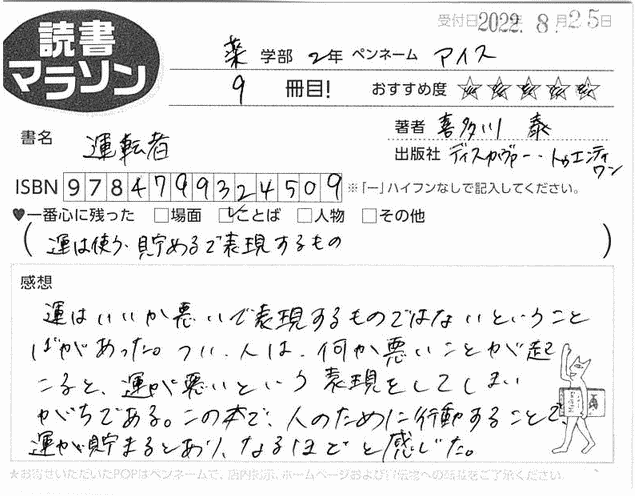 受付日2022年8月25日
読書
マラソン
薬 学部 2年 ペンネーム アイス
9 冊目! おすすめ度 ★★★★★
書名 運転者
著者 喜多川 泰
出版社 ディスカヴァー・トゥエンティワン
ISBN 9784799324509 ※「ー」ハイフンなしで記入してください。
♥一番心に残った □場面 ☑ことば □人物 □その他
(運は使う、貯めるで表現するもの)
感想
運はいいか悪いで表現するものではないということ
ばがあった。つい、人は、何か悪いことが起
こると、運が悪いという表現をしてしまい
がちである。この本で、人のために行動することで、
運が貯まるとあり、なるほどと感じた。
★お寄せいただいたPOPはペンネームで、店内掲示、ホームページおよび